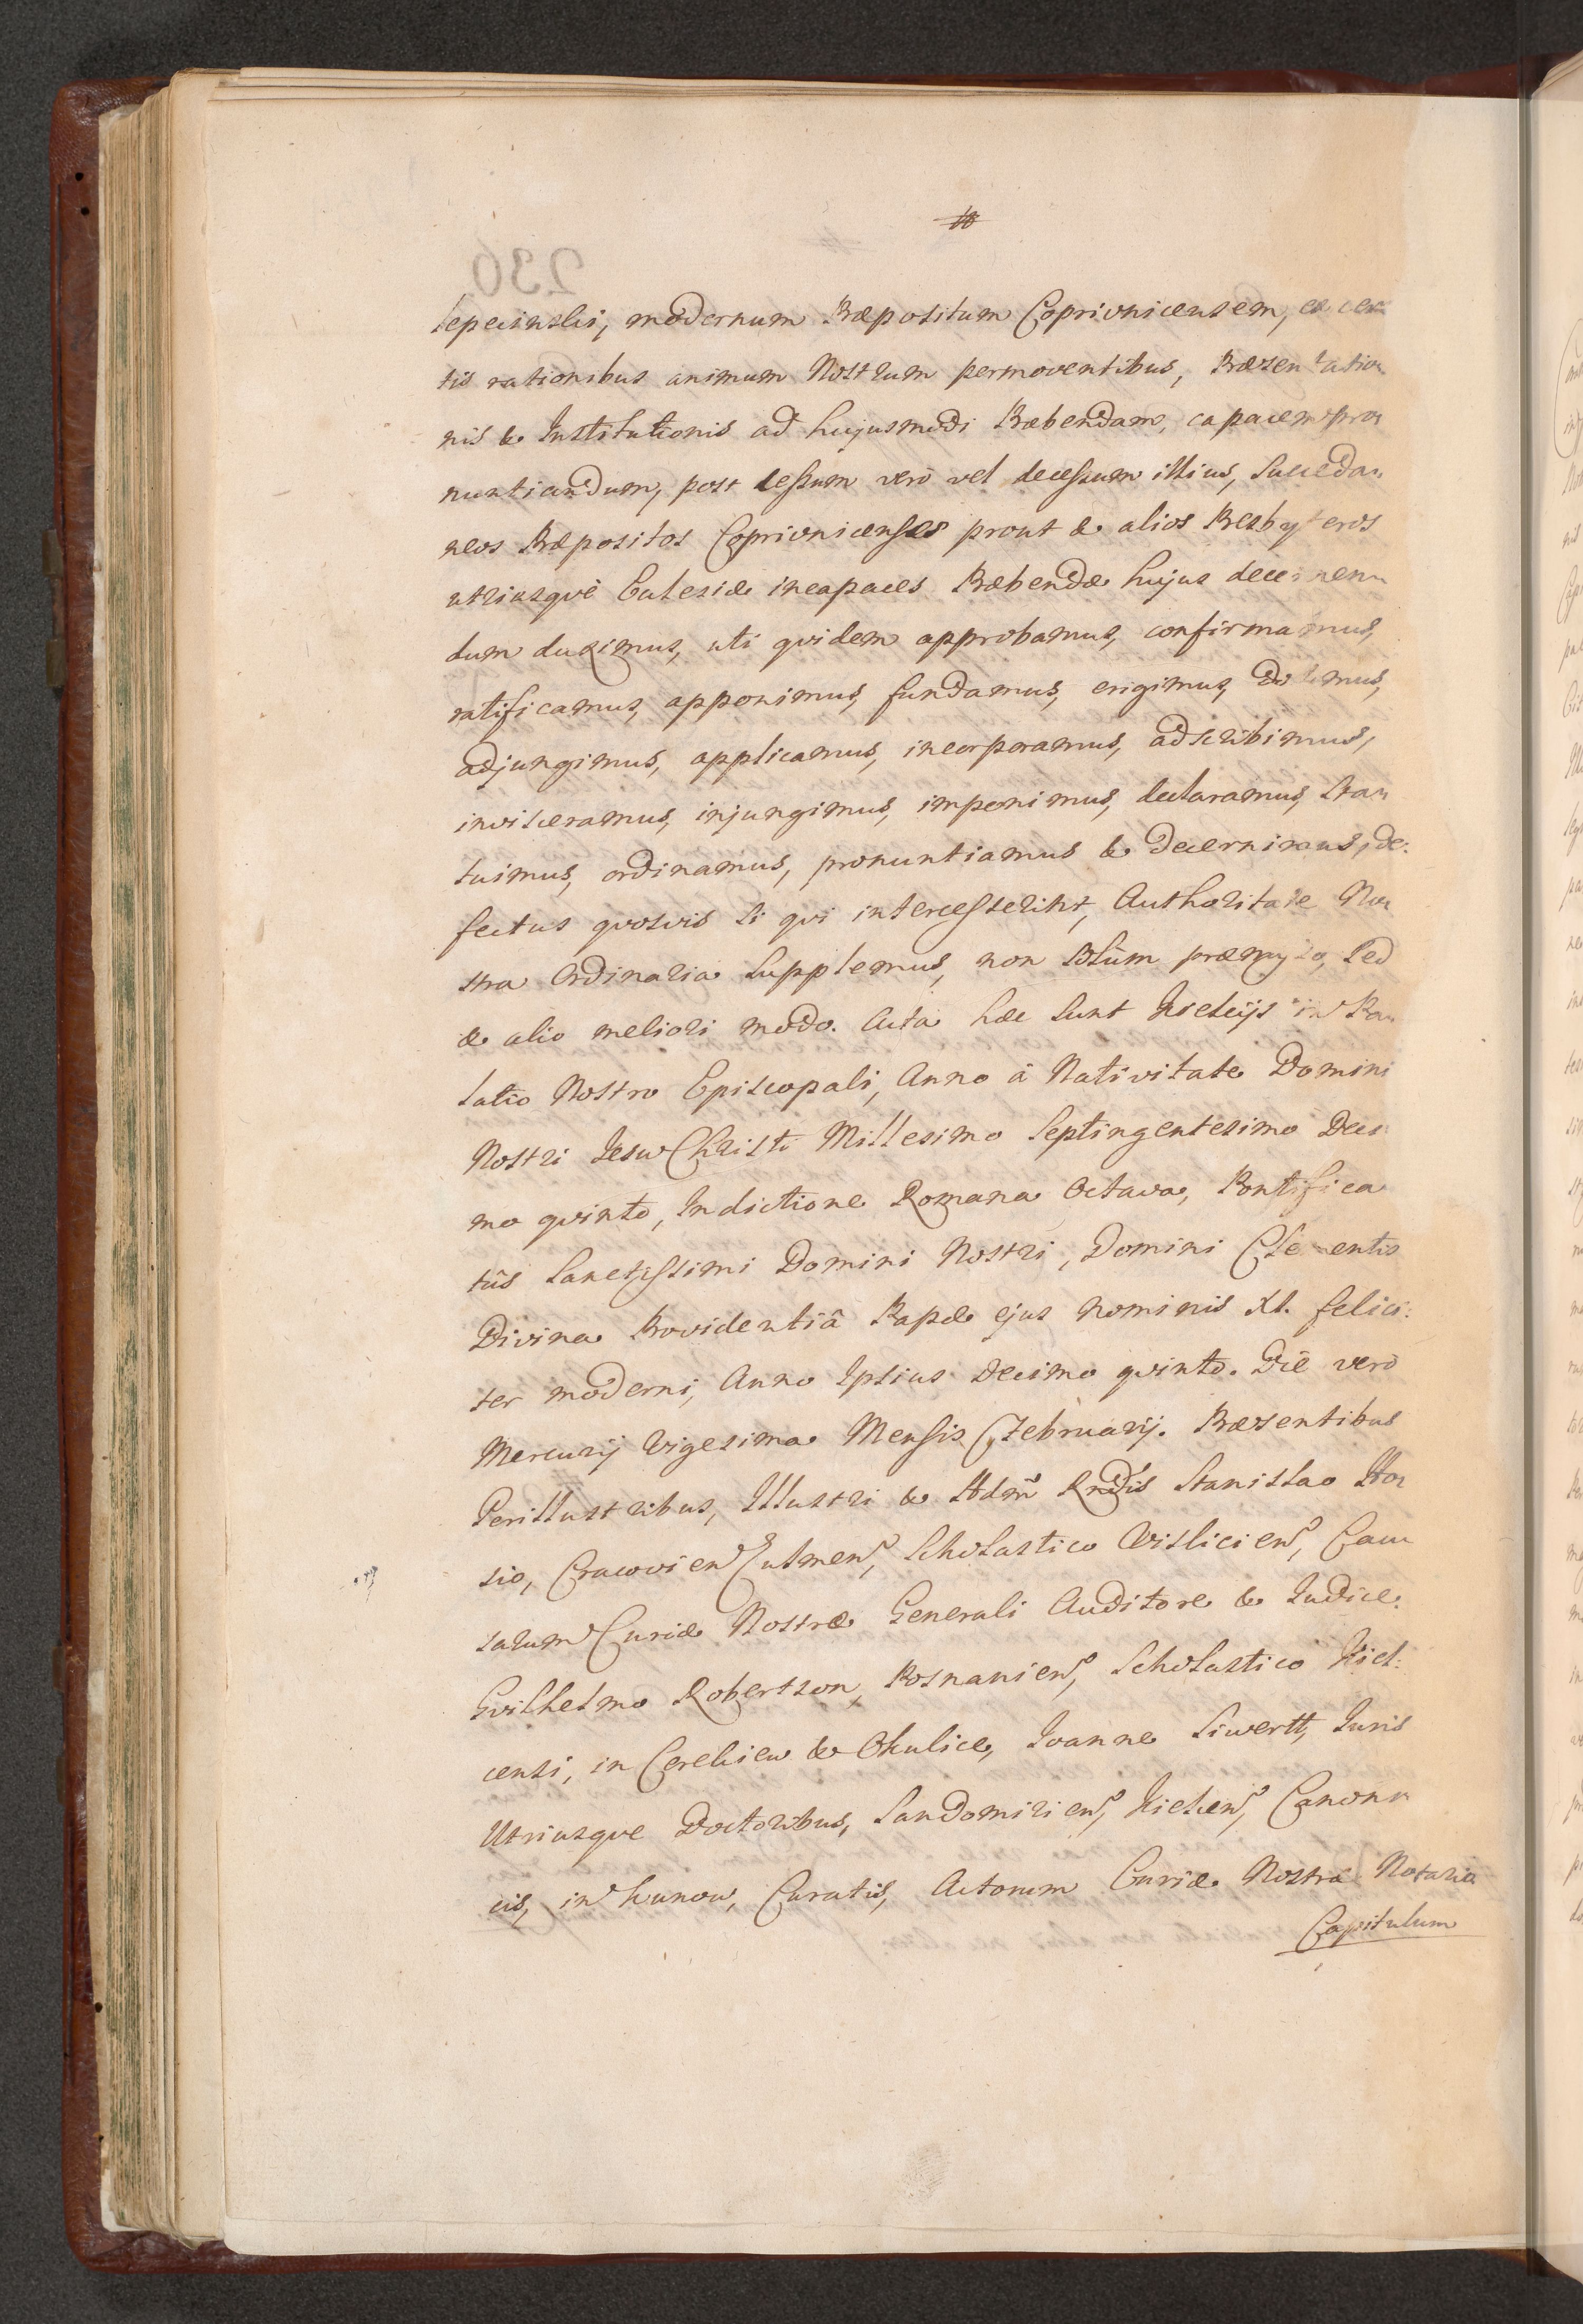 #
modernum Præpositum Coprivnicensem, ex cer
tis rationibus animum Nostrum permoventibus, Præsentatio
nis & Institutionis ad hujusmodi Præbendam, capacem pro
nuntiandum, post cessum verò vel decessum illius, succeda
neos Præpositos Coprivnicenses prout & alios Presbyteros
utriusquè Ecclesiæ incapaces Præbendæ hujus decernen
dum duximus, uti quidem approbamus, confirmamus,
ratificamus, apponimus, fundamus, erigimus, dotamus,
adjungimus, applicamus, incorporamus, adscribimus,
invisceramus, injungimus, imponimus, declaramus, sta
tuimus, ordinamus, pronuntiamus & decernimus, de:
fectus quosvis si qui intercesserint, Authoritate No
stra Ordinaria supplemus, non solùm præmisso, sed
& alio meliori modo. Acta hæc sunt Kielcijs in Pa
latio Nostro Episcopali, Anno à Nativitate Domini
Nostri Jesu Christi Millesimo Septingentesimo Deci
mo quinto, Indictione Romana Octava, Pontifica
tûs Sanctissimi Domini Nostri, Domini Clementis
Divina Providentiâ Papæ ejus nominis XI. felici:
ter moderni, Anno Ipsius decimo quinto. Die verò
Mercurij Vigesima Mensis Februarij. Præsentibus
Perillustribus, Illustri & Adm̃ Rndis Stanislao Ho
sio, Cracovien Culmen, Scholastico Vislicien, Cau
sarum Curiæ Nostræ Generali Auditore & Judice.
Gvilhelmo Robertson, Posnanien, Scholastico Kiel:
censi, in Cerekiew & Okulice, Joanne Siwertt, Juris
Utriusque Doctoribus, Sandomirien, Kielcen, Canoni
cis, in Lunow, Curatis, Actorum Curiæ Nostræ Notario
Capitulum